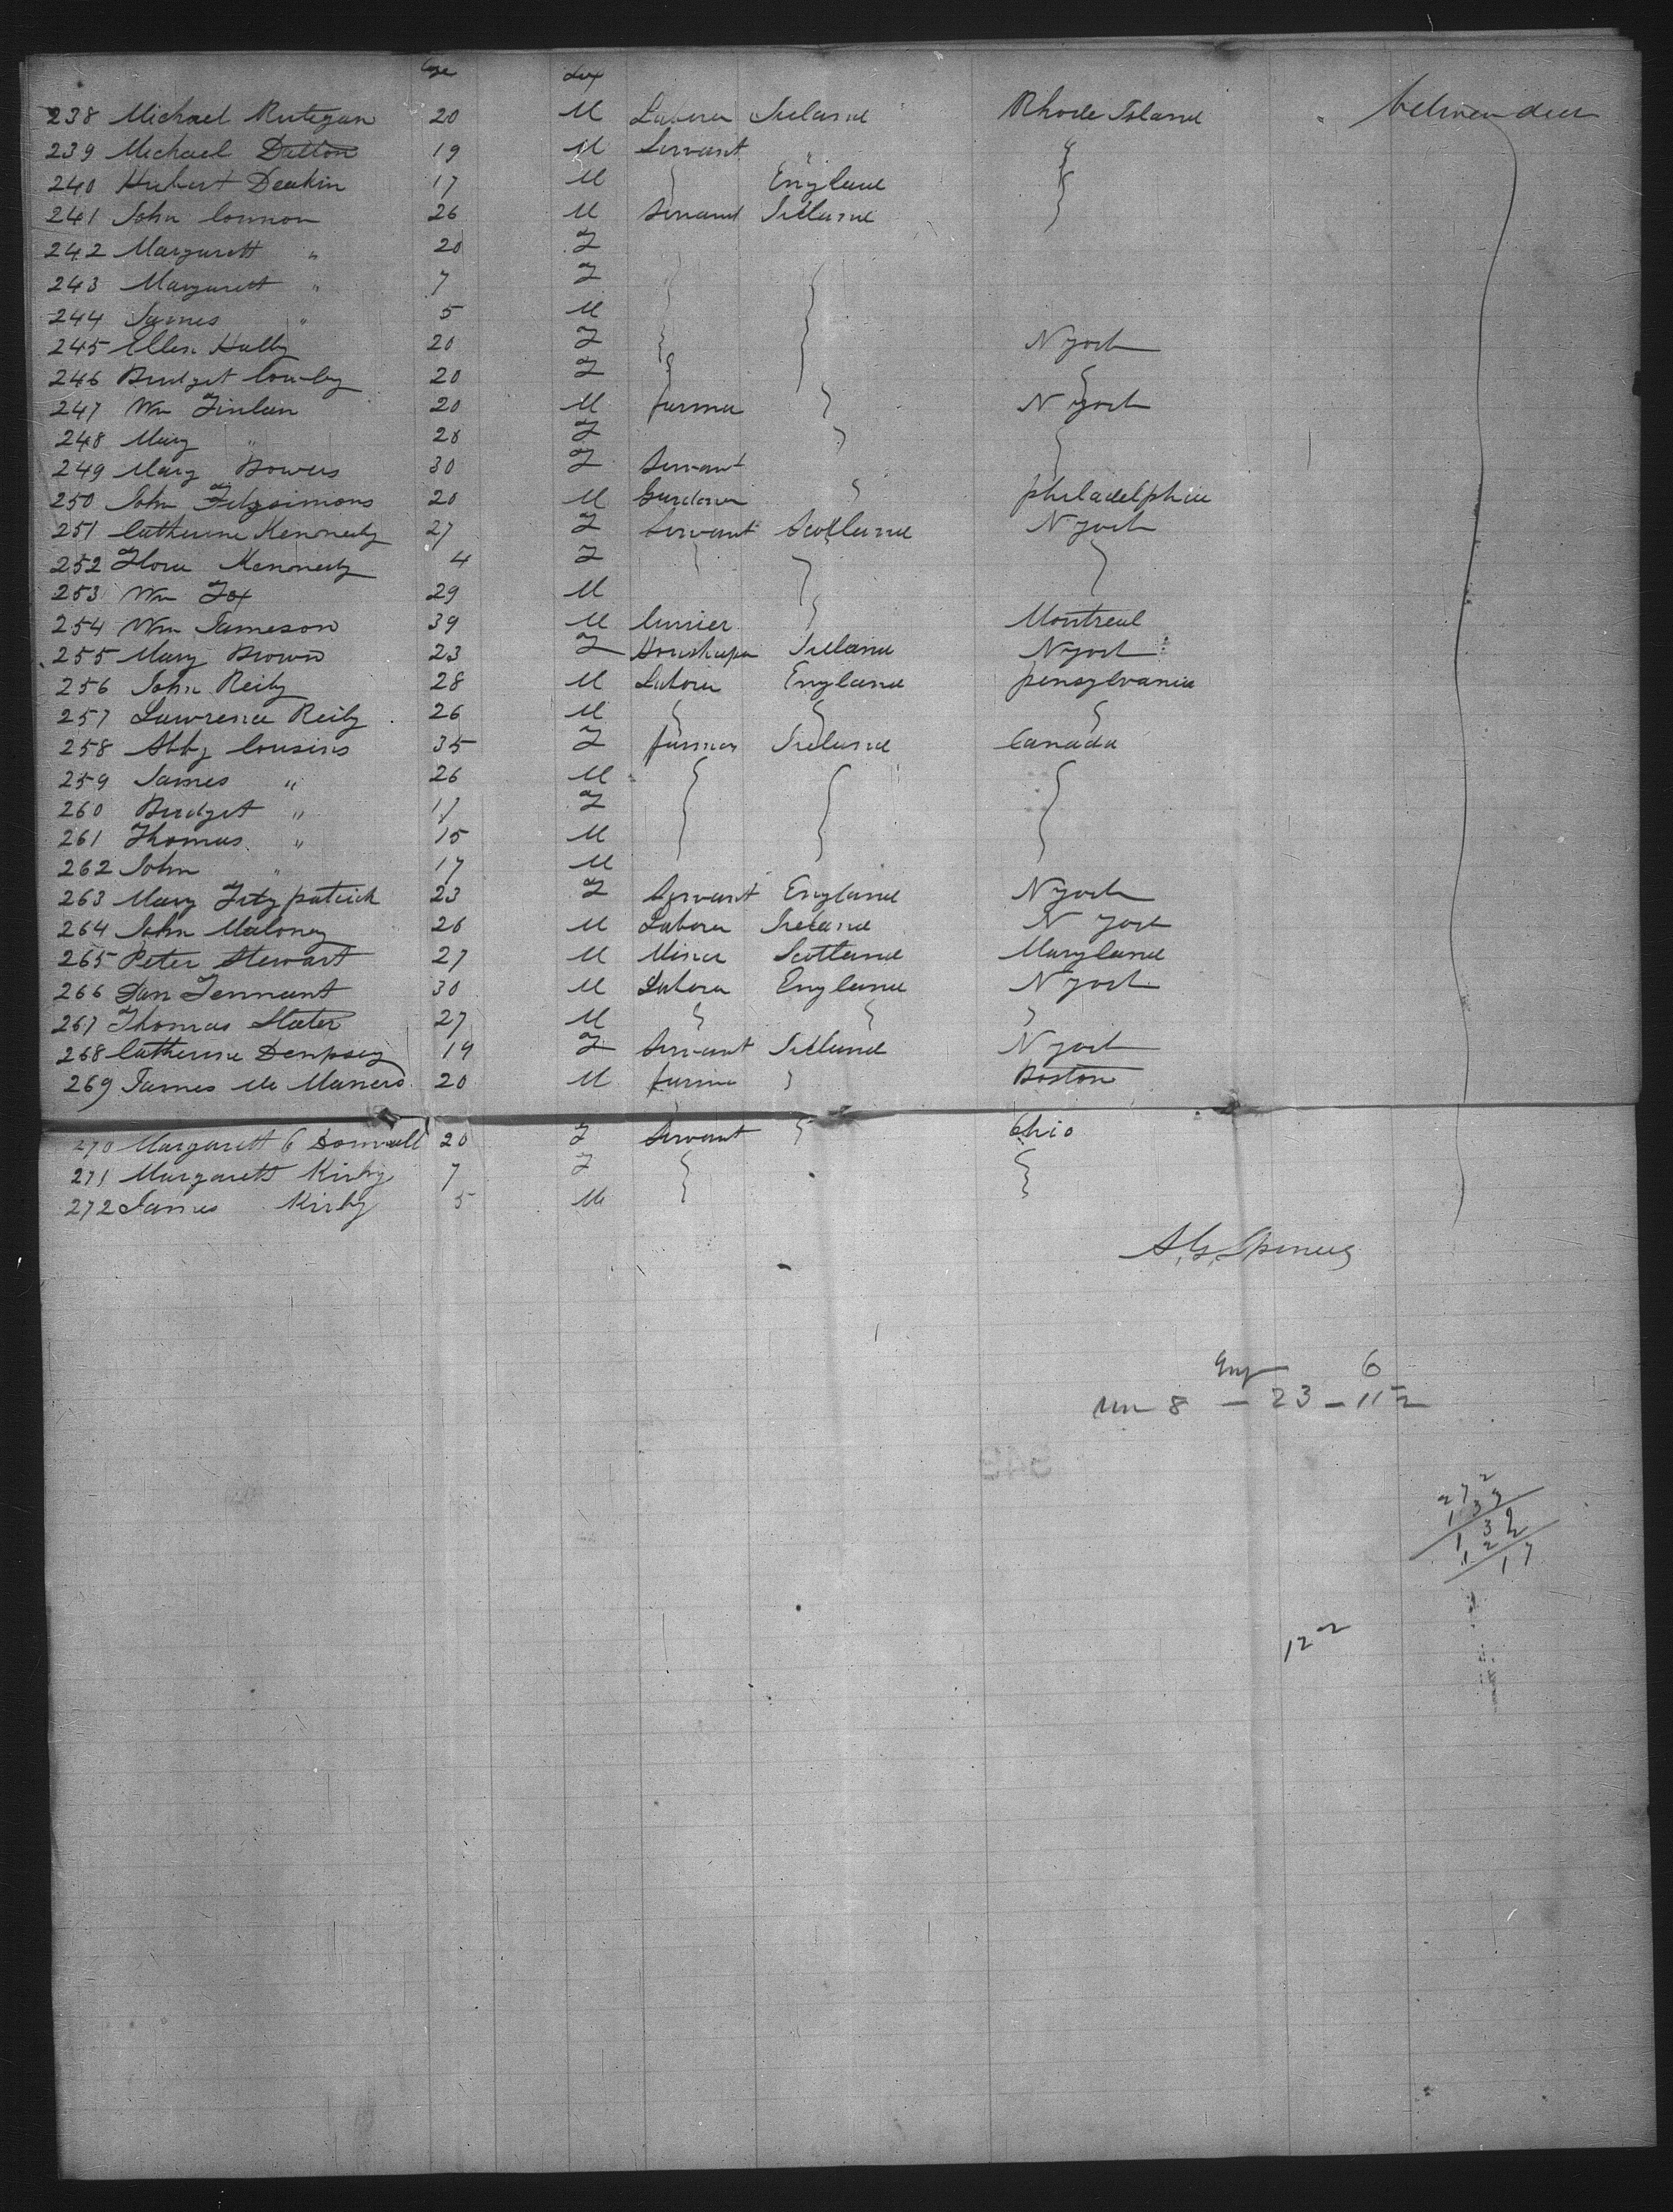 Age Sex
238 Michael Rutegan 20 M Laborer Ireland Rhode Island " between decks
239 Michael Dalton 19 M Servant "
240 Hubert Deakin 17 M England
241 John Connon 26 M Servant Ireland
242 Margarett " 20 F
243 Margarett " 7 F
244 James " 5 M
245 Ellen Hally 20 F N York
246 Bridget Cowley 20 F
247 Wm Finlan 20 M farmer N York
248 Mary " 28 F
249 Mary Bowers 30 F Servant
250 John Fitzsimons 20 M Gardener philadelphia
251 Catherine Kennedy 27 F Servant Scotland N York
252 Flora Kennedy 4 F
253 Wm Fox 29 M
254 Wm Jameson 39 M Currier Montreal
255 Mary Brown 23 F Ireland N York
256 John Reily 28 M Laborer England pensylvania
257 Lawrence Reily 26 M
258 Abby Cousins 35 F farmer Ireland Canada
259 James " 26 M
260 Bridget " 17 F
261 Thomas " 15 M
262 John " 17 M
263 Mary Fitzpatrick 23 F Servant England N York
264 John Maloney 26 M Laborer Ireland N York
265 Peter Stewart 27 M Miner Scotland Maryland
266 Dan Tennant 30 M Laborer England N York
267 Thomas Slater 27 M
268 Catherine Dempsey 19 F Servant Ireland N York
269 James Mc Manero 20 M farmer Boston
270 Margarett O Donnell 20 F Servant Ohio
271 Margarett Kirby 7 F
272 James Kirby 5 M
A. G. Spencer
Eng 6
8 — 23 — 112
272
132
122
17
122